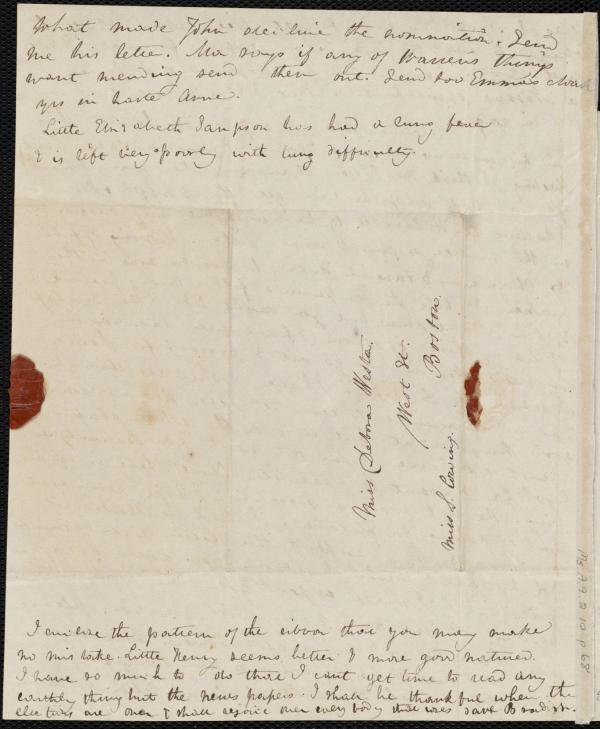 What made John decline the nomination. Send
me his letter. Ma says if any of Warrens things
want mending send them out. Send too Emmas cloak
yrs in haste Anne.
Little Elizabeth Sampson has had a lung fever
& is left very poorly with lung difficulty.
Miss Debora Weston.
West St.
Boston.
Miss S. Cowing.
I enclose the pattern of the ribbon that you may make
no mistake. Little Henry seems better & more good natured.
I have so much to do that I cant get time to read any
earthly thing but the news papers. I shall be thankful when the
elections are over & shall rejoice over every body that was